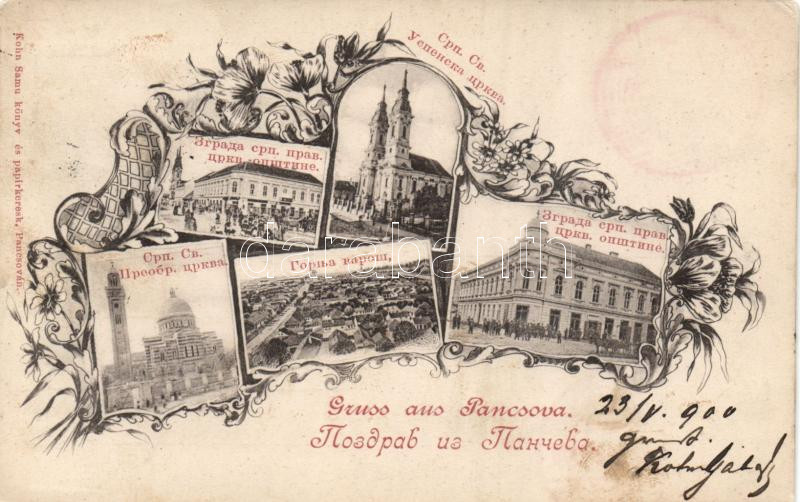 Kohn Samu könyv és papirkeresk. Pancsován.
Срп. Св.
Успенска црква.
Зграда срп. прав.
цркв. општине.
Зграда срп. прав.
цркв. општине.
Срп. Св.
Преобр. црква.
Горња варош.
darabanth
Gruss aus Pancsova.
Поздрав из Панчева.
23/V. 900